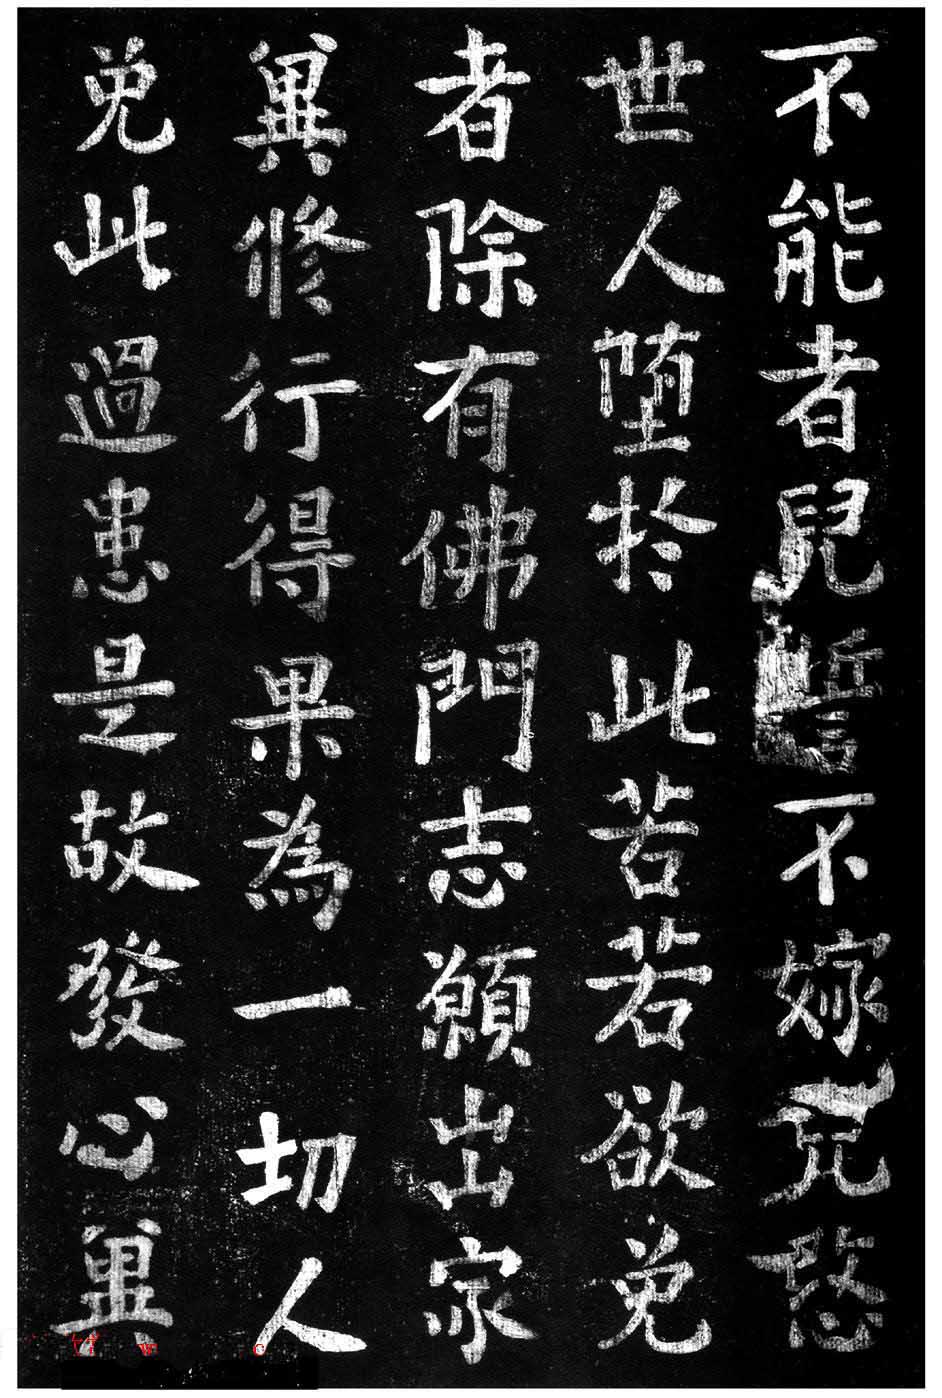 不能者兒誓不嫁兒愍
世人墮於此苦若欲免
者除有佛門志願出家
冀修行得果為一切人
免此過患是故發心冀